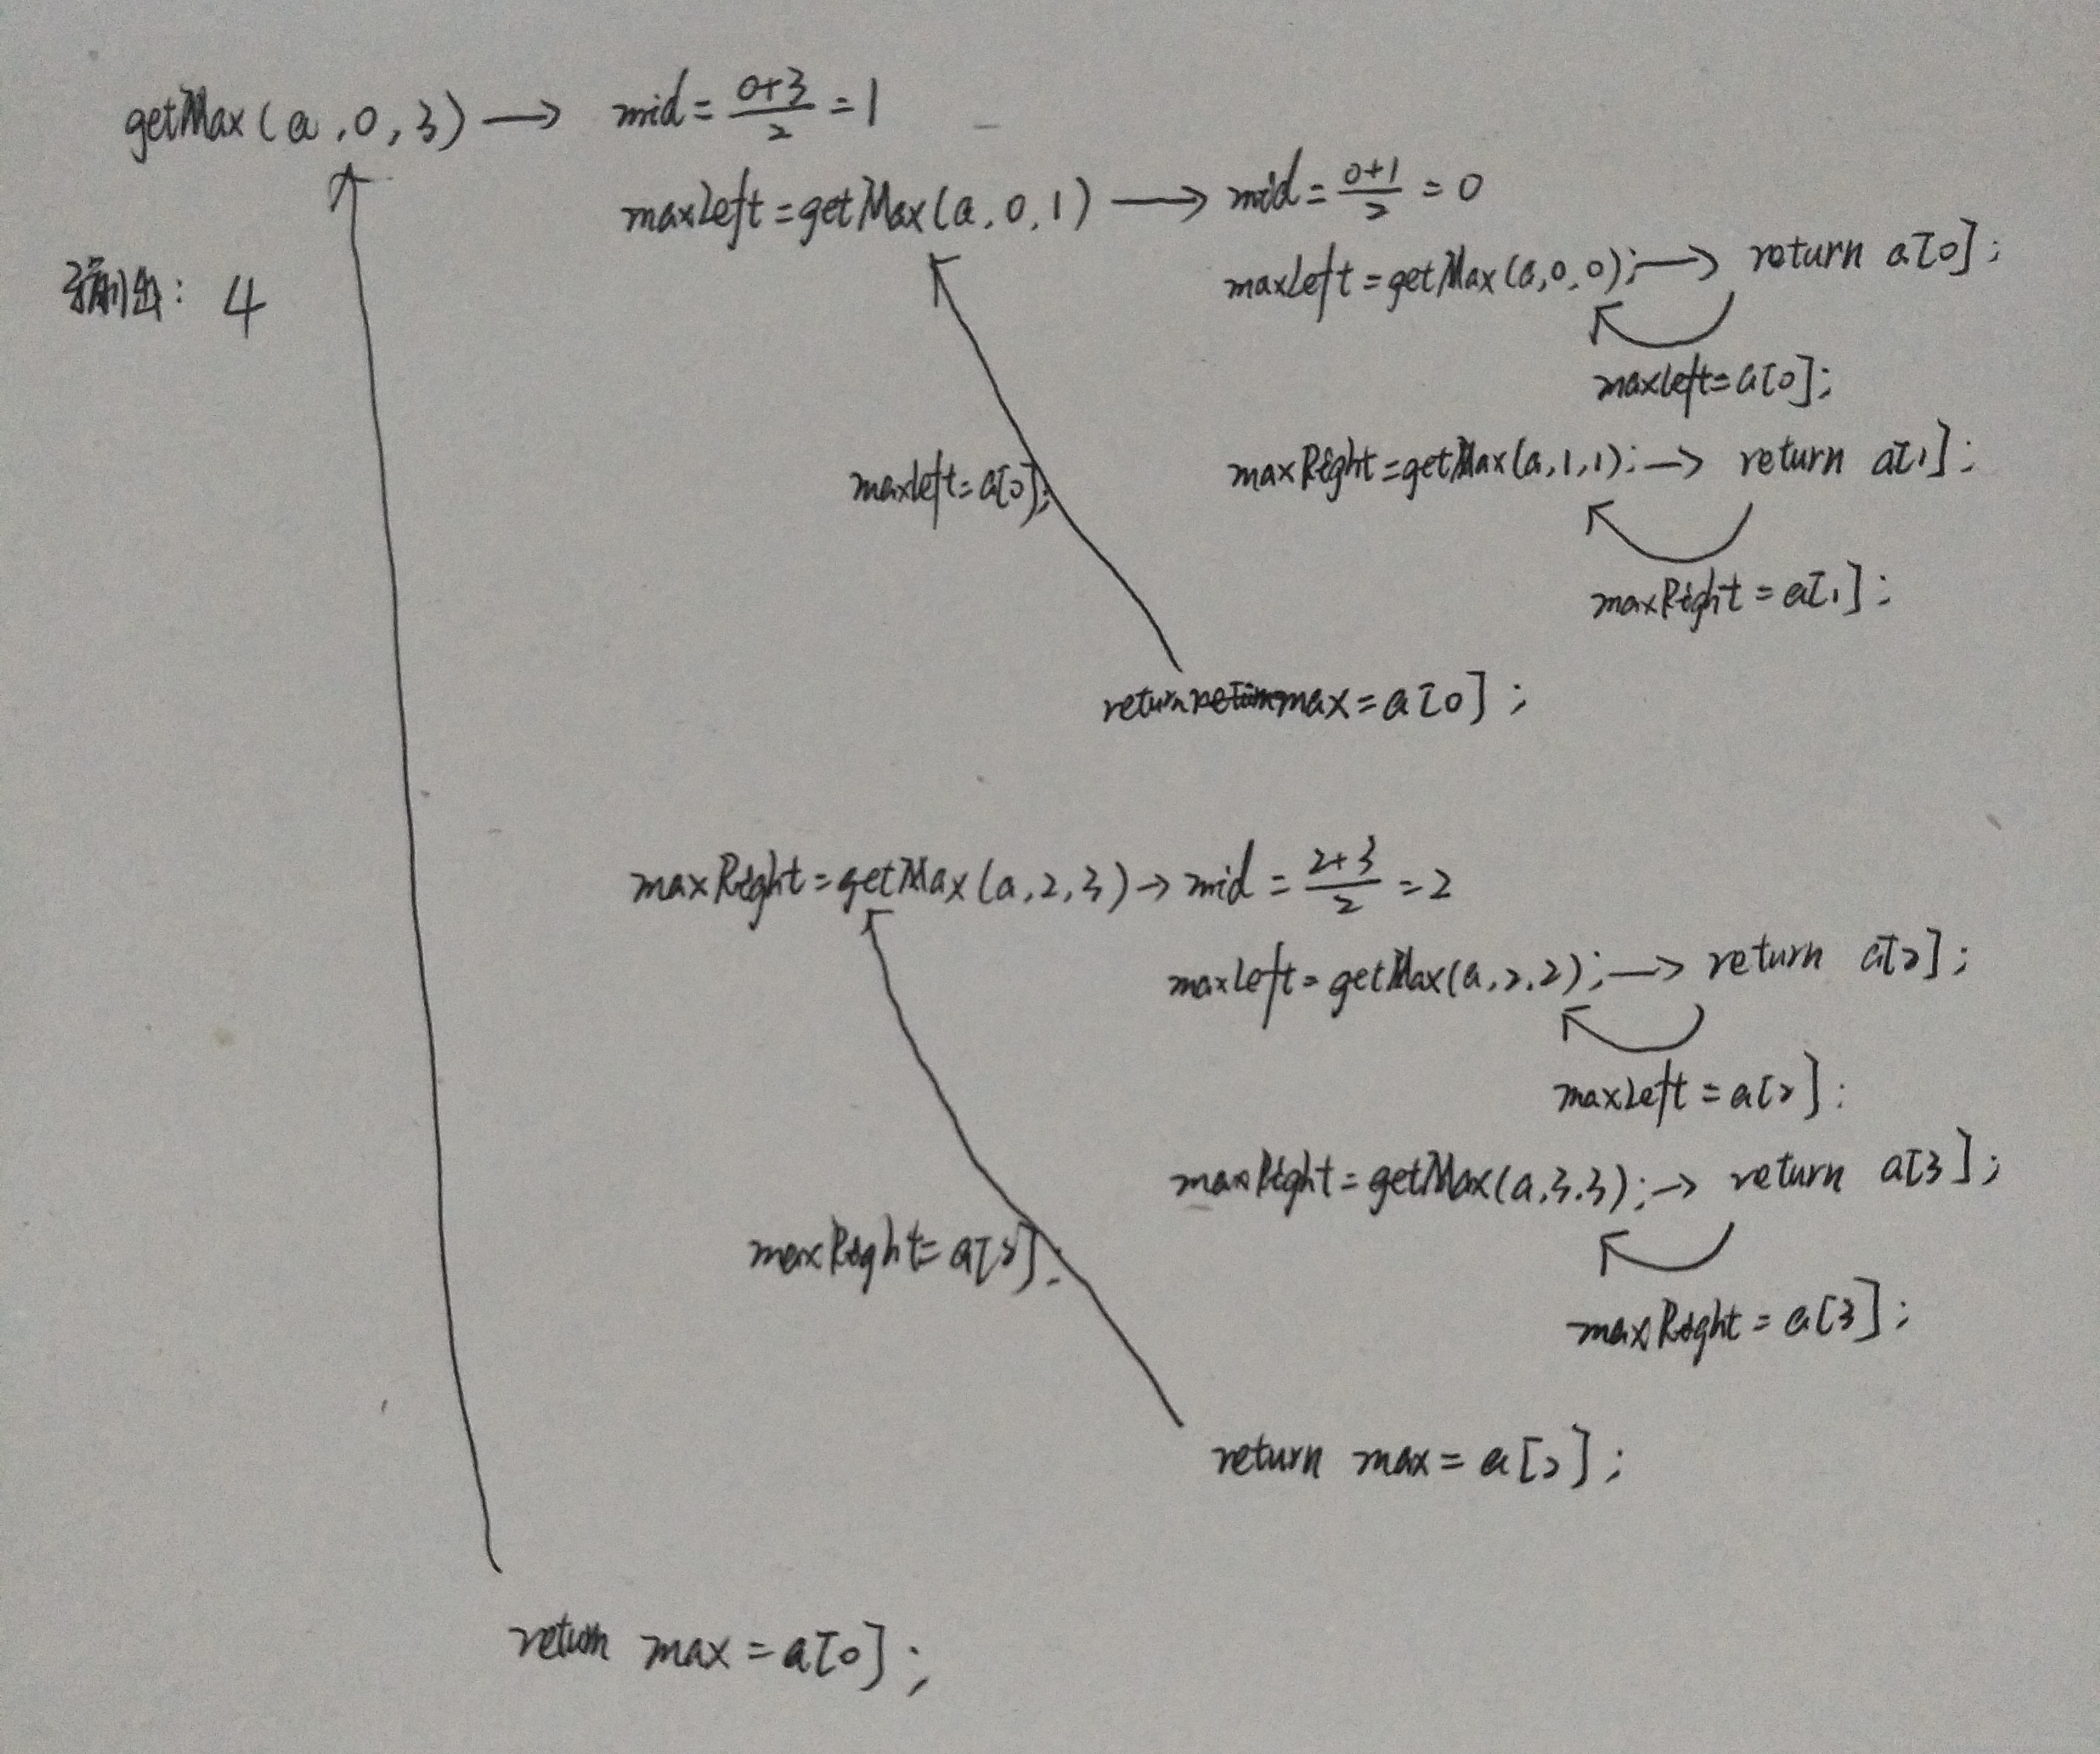 getMax(a,0,3) → mid = 0+3/2 = 1
maxLeft = getMax(a,0,1) → mid = 0+1/2 = 0
输出: 4
maxLeft = getMax(a,0,0); → return a[0];
maxLeft = a[0];
maxLeft = a[0];
maxRight = getMax(a,1,1); → return a[1];
maxRight = a[1];
return max = a[0];
maxRight = getMax(a,2,3) → mid = 2+3/2 = 2
maxLeft = getMax(a,2,2); → return a[2];
maxLeft = a[2];
maxRight = getMax(a,3,3); → return a[3];
maxRight = a[2];
maxRight = a[3];
return max = a[2];
return max = a[0];